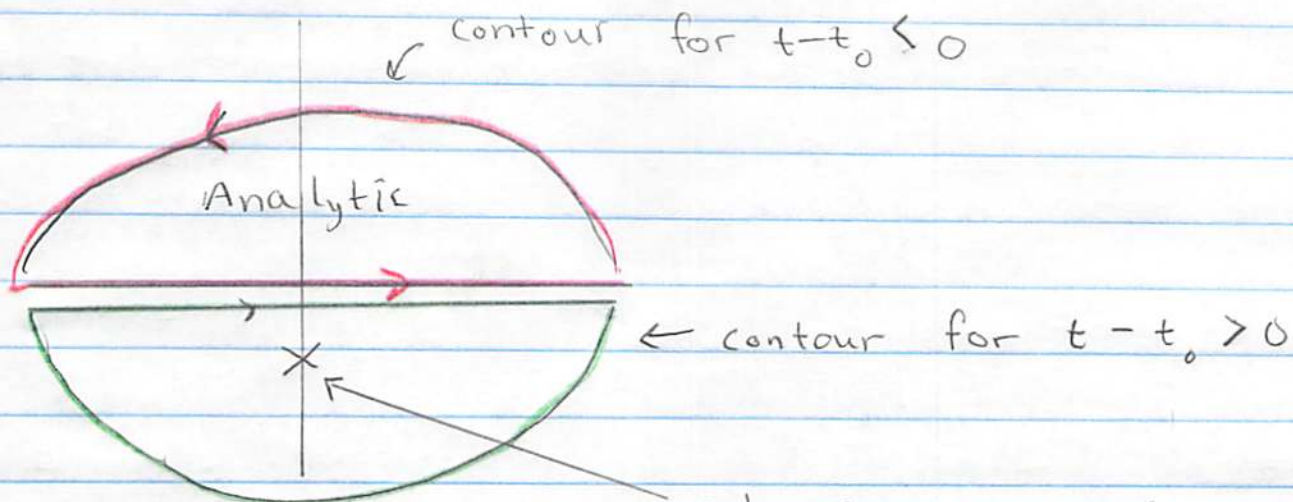 contour for t-t₀ < 0
Analytic
← contour for t - t₀ > 0
×